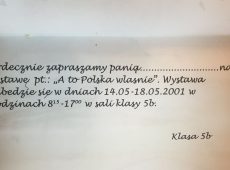 rdecznie zapraszamy panią......................na
stawę pt.: „A to Polska właśnie”. Wystawa
będzie się w dniach 14.05-18.05.2001 w
odzinach 8¹⁵-17⁰⁰ w sali klasy 5b.
Klasa 5b